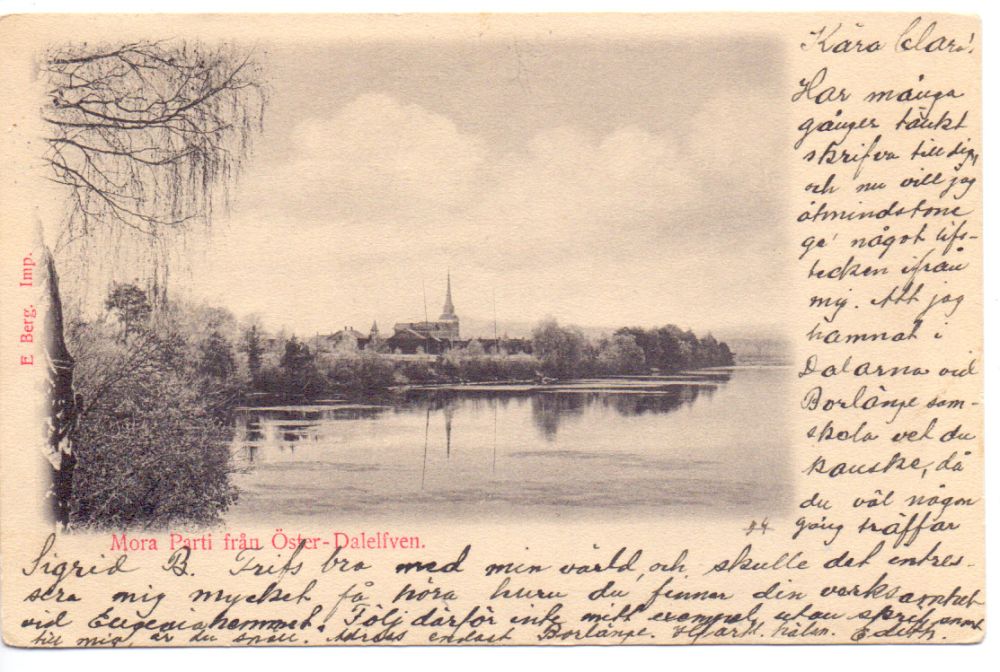 Kära Clara!
Har många
gånger tänkt
skrifva till dig,
och nu vill jag
åtmindstone
ge något lifs-
tecken ifrån
mig. Att jag
hamnat i
Dalarna vid
Borlänge sam-
skola vet du
kanske, då
du väl någon
gång träffar
Sigrid B. Trifs bra med min värld, och skulle det intres-
sera mig mycket få höra huru du finner din verksamhet
vid Eugeniahemmet. Följ därför inte mitt exempel utan skrif snart
till mig, är du snäll. Adress endast Borlänge. hälsn. Edith.
Mora Parti från Öster-Dalelfven.
E. Berg. Imp.